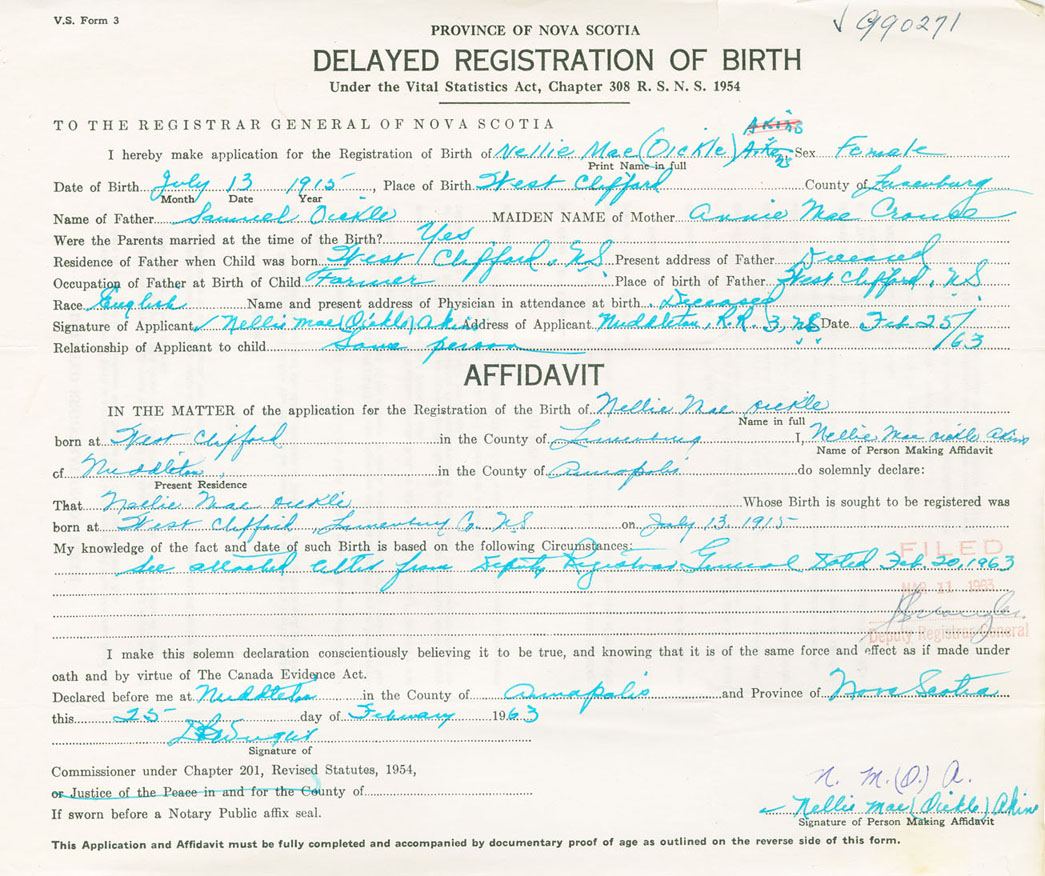 V.S. Form 3
990271
PROVINCE OF NOVA SCOTIA
DELAYED REGISTRATION OF BIRTH
Under the Vital Statistics Act, Chapter 308 R. S. N. S. 1954
TO THE REGISTRAR GENERAL OF NOVA SCOTIA
Akins
I hereby make application for the Registration of Birth of Nellie Mae (Oickle) Akens Sex Female
Print Name in full
Date of Birth July 13 1915, Place of Birth West Clifford County of Lunenburg
Month Date Year
Name of Father Samuel Oickle MAIDEN NAME of Mother Annie Mae Crouse
Were the Parents married at the time of the Birth? Yes
Residence of Father when Child was born West Clifford, N.S. Present address of Father Deceased
Occupation of Father at Birth of Child Farmer Place of birth of Father West Clifford, N.S.
Race English Name and present address of Physician in attendance at birth. Deceased
Signature of Applicant Nellie Mae (Oickle) Akins Address of Applicant Middleton, R.R. 3, NS Date Feb. 25/
Relationship of Applicant to child Same person /63
AFFIDAVIT
IN THE MATTER of the application for the Registration of the Birth of Nellie Mae Oickle
Name in full
born at West Clifford in the County of Lunenburg I, Nellie Mae Oickle Akins
Name of Person Making Affidavit
of Middleton, in the County of Annapolis do solemnly declare:
Present Residence
That Nellie Mae Oickle Whose Birth is sought to be registered was
born at West Clifford, Lunenburg Co. NS on July 13, 1915
My knowledge of the fact and date of such Birth is based on the following Circumstances:
FILED
See attached letter from Deputy Registrar General Dated Feb. 20, 1963
MAR 11 1963
Deputy Registrar General
I make this solemn declaration conscientiously believing it to be true, and knowing that it is of the same force and effect as if made under
oath and by virtue of The Canada Evidence Act.
Declared before me at Middleton in the County of Annapolis and Province of Nova Scotia
this 25 day of February 1963
Signature of
Commissioner under Chapter 201, Revised Statutes, 1954,
or Justice of the Peace in and for the County of
N. M. (O.) A.
If sworn before a Notary Public affix seal.
Nellie Mae (Oickle) Akins
Signature of Person Making Affidavit
This Application and Affidavit must be fully completed and accompanied by documentary proof of age as outlined on the reverse side of this form.